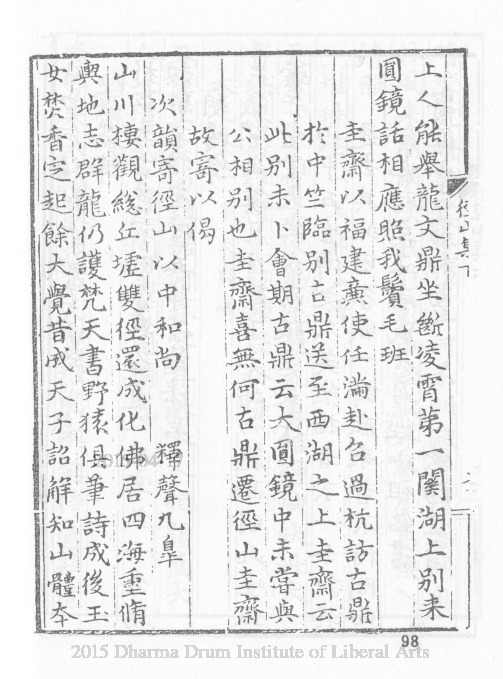 上人能舉龍文鼎坐斷凌霄第一關湖上別来
圓鏡話相應照我鬢毛班
圭齋以福建㢘使任滿赴召過杭訪古鼎
於中竺臨別古鼎送至西湖之上圭齋云
此別未卜會期古鼎云大圓鏡中未嘗與
公相別也圭齋喜無何古鼎遷徑山圭齋
故寄以偈
次韻寄徑山以中和尚　釋聲九臯
山川樓觀総丘墟雙徑還成化佛居四海重脩
輿地志群龍仍護梵天書野猿俱聿詩成後玉
女焚香定起餘大覺昔成天子詔解知山體本
徑山集下
98
2015 Dharma Drum Institute of Liberal Arts